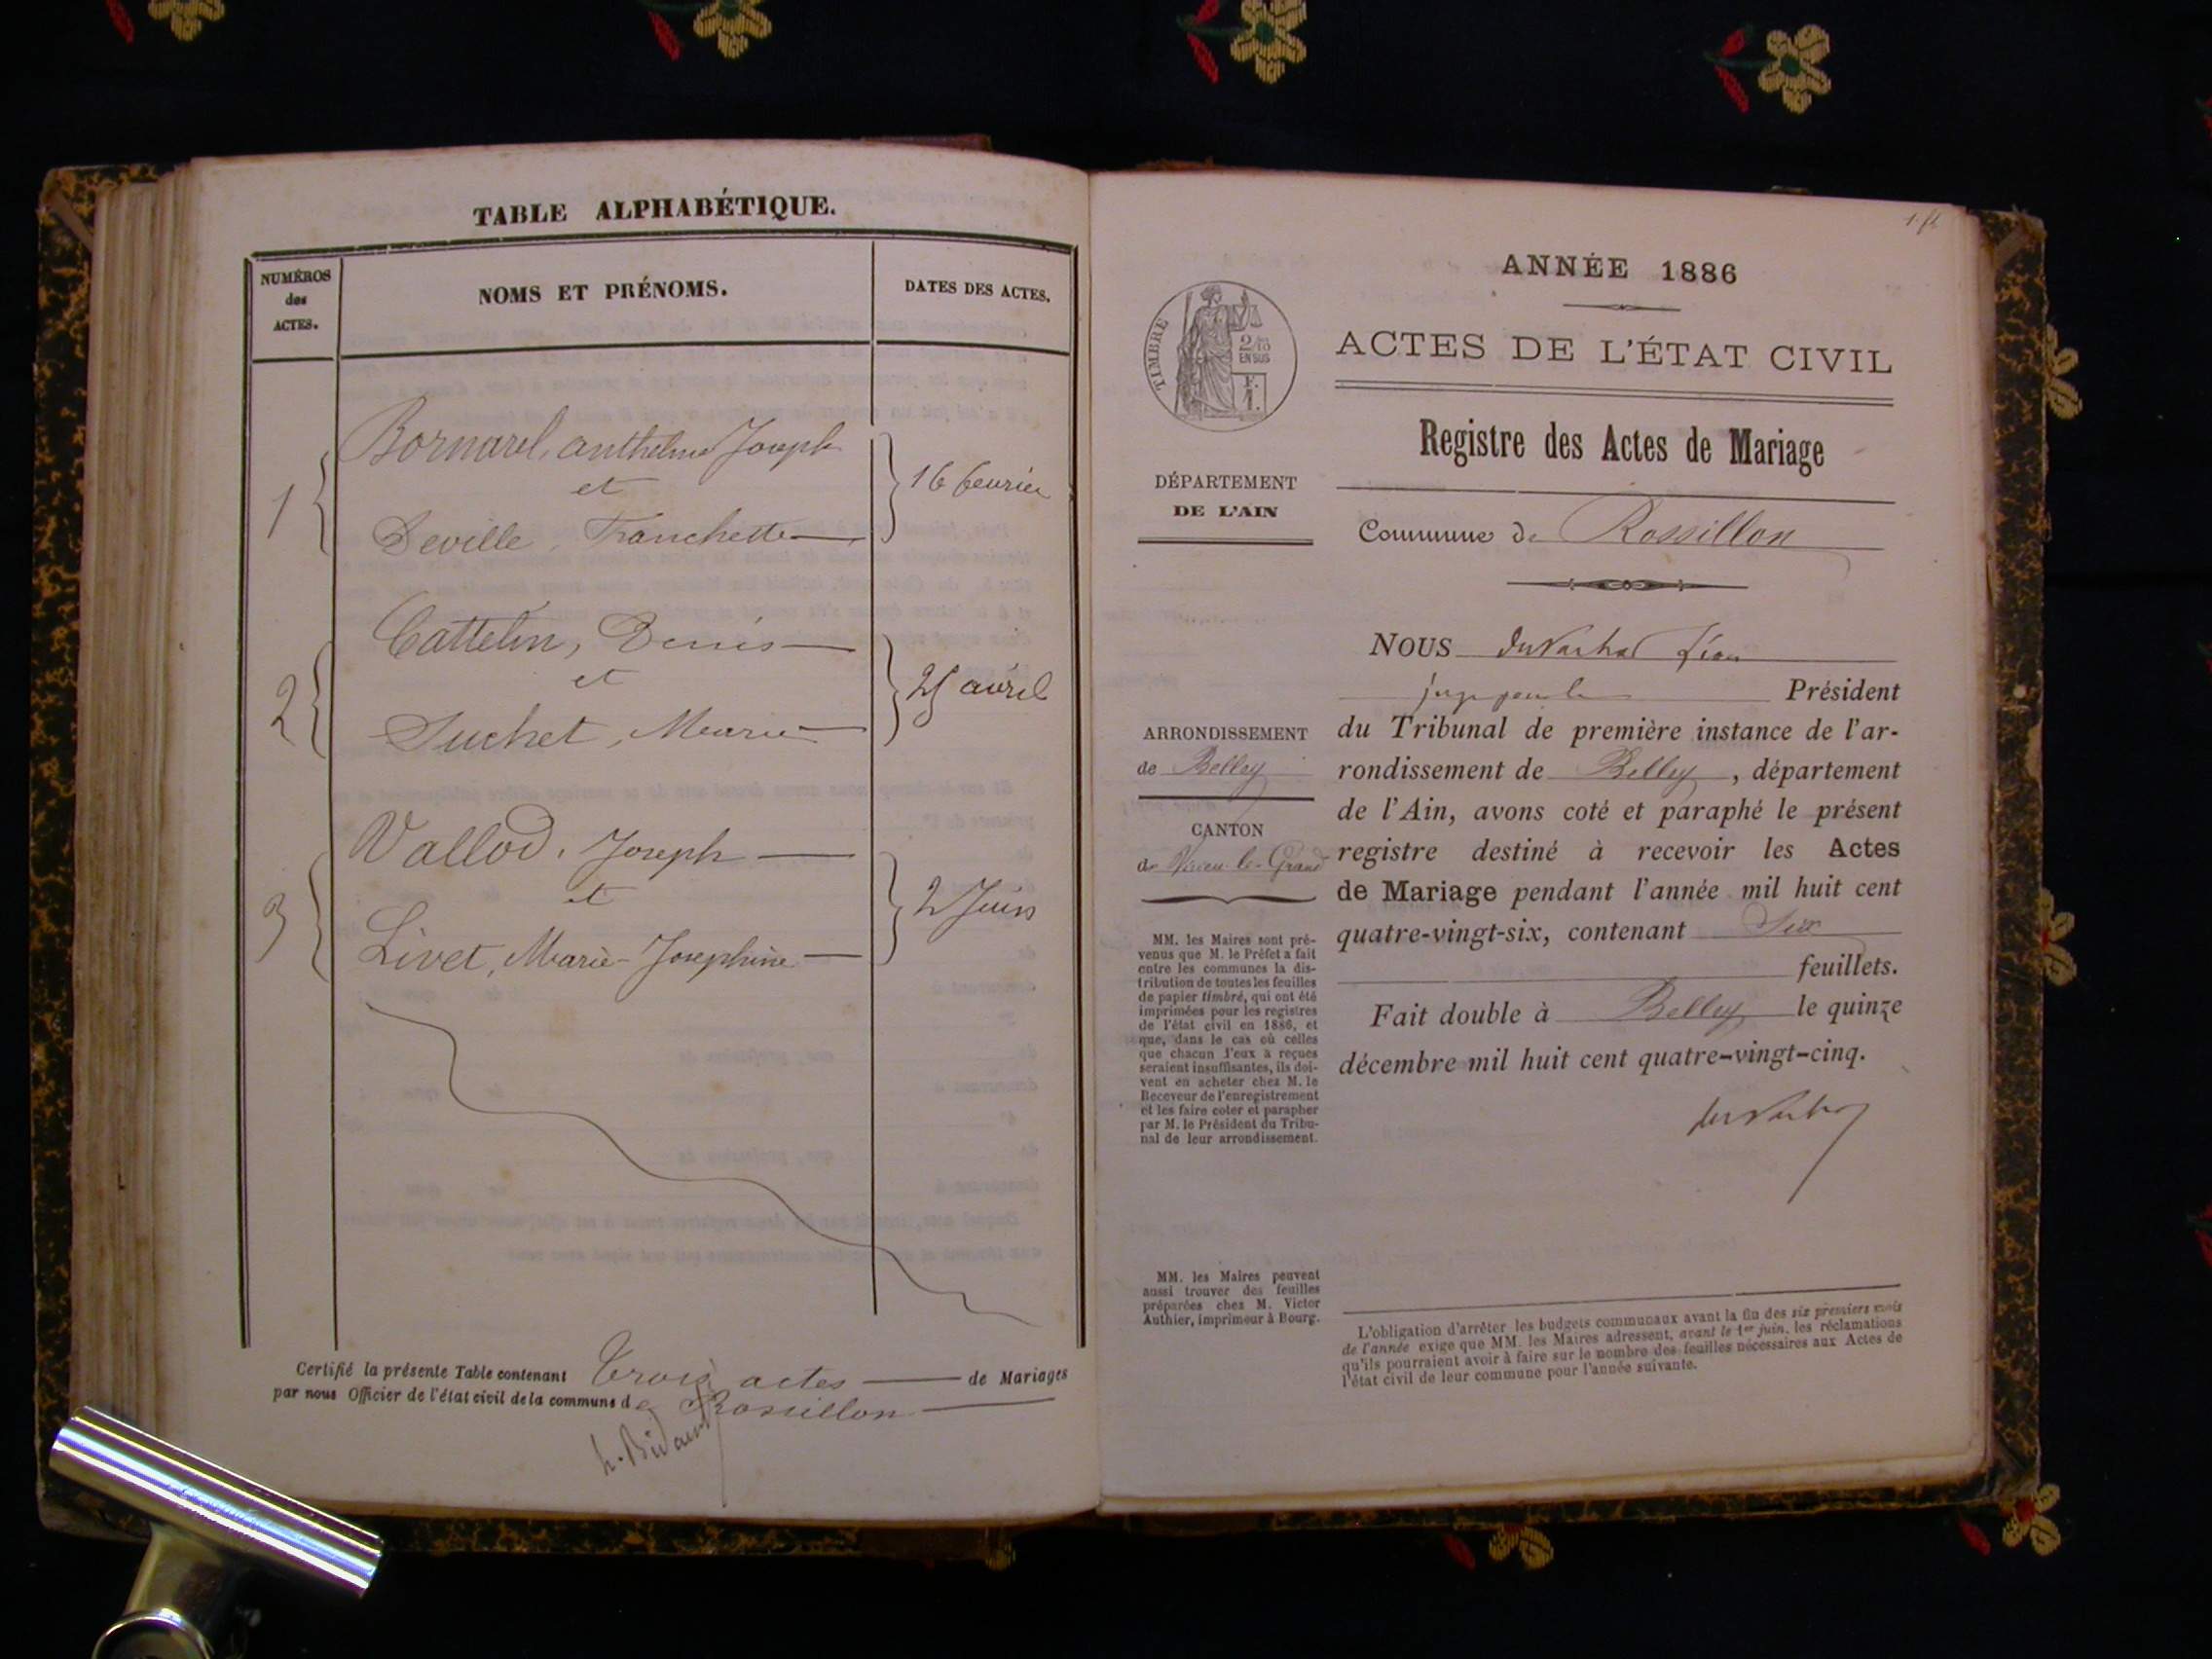 TABLE ALPHABÉTIQUE.
NUMÉROS des ACTES.
NOMS ET PRÉNOMS.
DATES DES ACTES.
Bornarel, anthelme Joseph
1 et 16 fevrier
Deville, Franchette
Cattelin, Denis
2 et 25 avril
Suchet, Marie
Vallod, Joseph
3 et 2 Juin
Livet, Marie-Josephine
Certifié la présente Table contenant Trois actes de Mariages
par nous Officier de l'état civil de la commune de Rossillon
h. Bidaud
ANNÉE 1886
TIMBRE
2/10
EN SUS
F.
1.
ACTES DE L'ÉTAT CIVIL
Registre des Actes de Mariage
DÉPARTEMENT
DE L'AIN
Commune de Rossillon
NOUS
Président
du Tribunal de première instance de l'ar-
rondissement de Belley, département
de l'Ain, avons coté et paraphé le présent
registre destiné à recevoir les Actes
de Mariage pendant l'année mil huit cent
quatre-vingt-six, contenant Six
feuillets.
Fait double à Belley le quinze
décembre mil huit cent quatre-vingt-cinq.
ARRONDISSEMENT
de Belley
CANTON
de Virieu-le-Grand
MM. les Maires sont pré-
venus que M. le Préfet a fait
entre les communes la dis-
tribution de toutes les feuilles
de papier timbré, qui ont été
imprimées pour les registres
de l'état civil en 1886, et
que, dans le cas où celles
que chacun d'eux a reçues
seraient insuffisantes, ils doi-
vent en acheter chez M. le
Receveur de l'enregistrement
et les faire coter et parapher
par M. le Président du Tribu-
nal de leur arrondissement.
MM. les Maires peuvent
aussi trouver des feuilles
préparées chez M. Victor
Authier, imprimeur à Bourg.
L'obligation d'arrêter les budgets communaux avant la fin des six premiers mois
de l'année exige que MM. les Maires adressent, avant le 1er juin, les réclamations
qu'ils pourraient avoir à faire sur le nombre des feuilles nécessaires aux Actes de
l'état civil de leur commune pour l'année suivante.